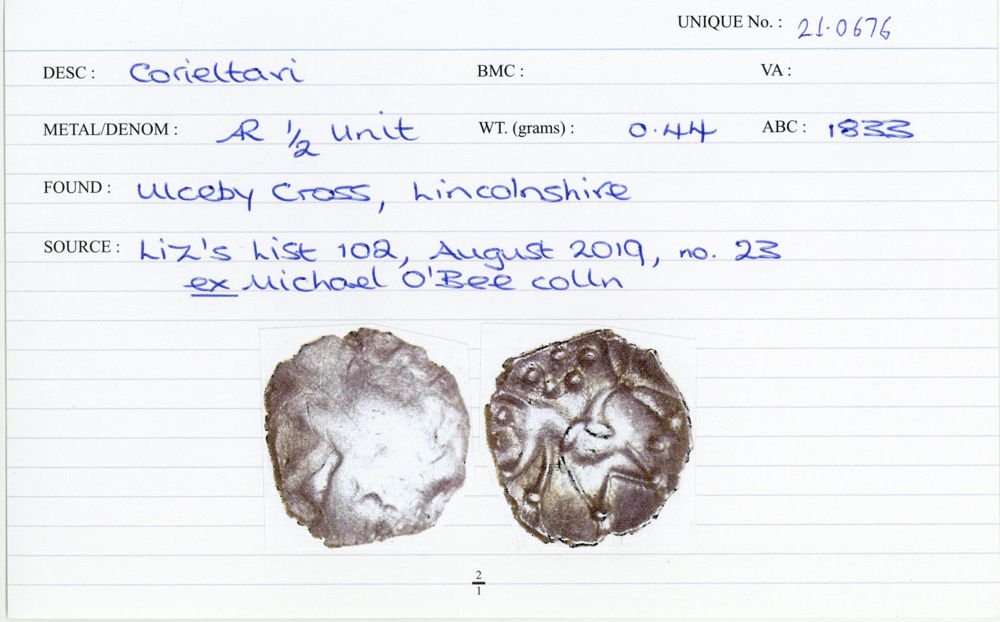 UNIQUE No. : 21.0676
DESC : Corieltavi BMC : VA :
METAL/DENOM : AR 1/2 unit WT. (grams) : 0.44 ABC : 1833
FOUND : Ulceby Cross, Lincolnshire
SOURCE : Liz's List 102, August 2019, no. 23
ex Michael O'Bee colln
2/1